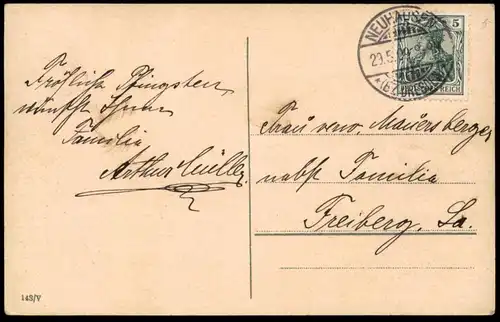 Fröhliche Pfingsten
wünscht Ihnen
Familie
Arthur Müller
NEUHAUSEN
29.5.
(BZ. DRESDEN)
5
REICH
Frau verw. Mauersberger
nebst Familie
Freiberg, Sa.
143/V